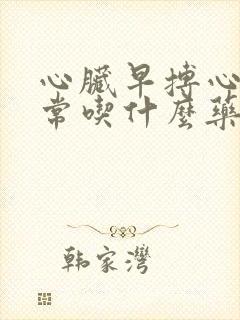 心臟早搏心
常喫什麼藥
韩家灣